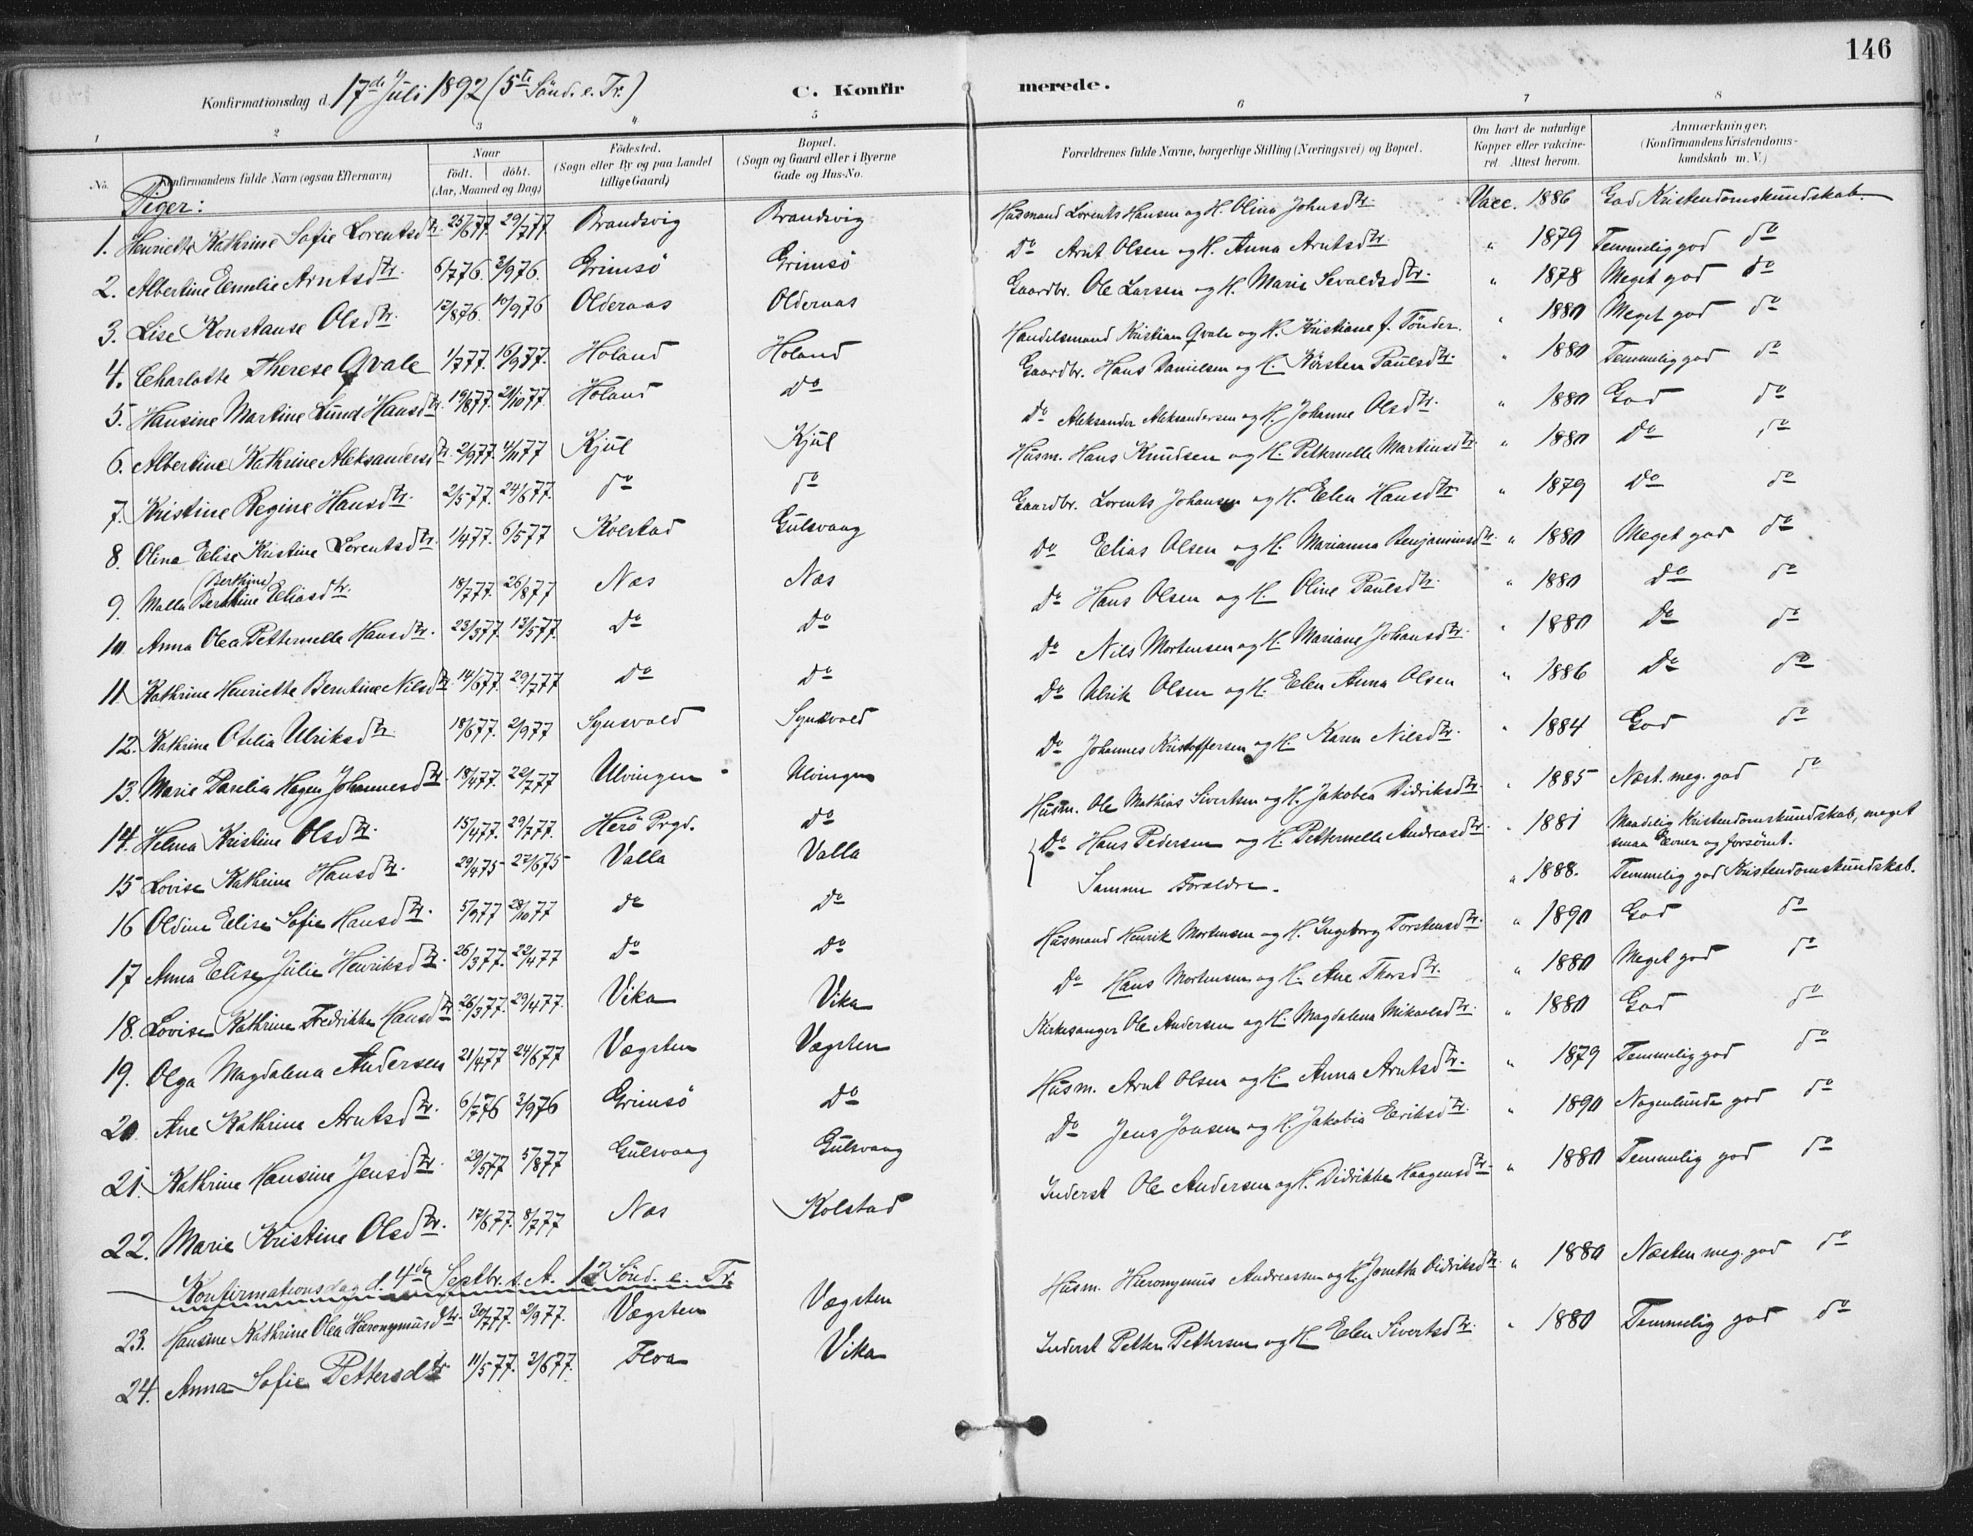 146
Konfirmationsdag d. 17de Juli 1892 (5te Sönd. e. Tr.) C. Konfirmerede.
1 2 3 4 5 6 7 8
No. Konfirmandens fulde Navn (ogsaa Efternavn) Naar født. døbt. (Aar, Maaned og Dag) Fødested. (Sogn eller By og paa Landet tillige Gaard) Bopæl. (Sogn og Gaard eller i Byerne Gade og Hus-No. Forældrenes fulde Navne, borgerlige Stilling (Næringsvei) og Bopæl. Om havt de naturlige Kopper eller vaccineret. Attest herom. Anmærkninger. (Konfirmandens Kristendomskundskab m. V.)
Piger:
1. Henriette Kathrine Sofie Lorentsdtr. 25/677. 29/777 Brandsvig Brandsvig Husmand Lorents Hansen og H. Olina Johnsdtr. Vacc. 1886 God Kristendomskundskab.
2. Albertine Emilie Arntsdtr. 6/776. 3/976. Grimsö Grimsö Do Arnt Olsen og H. Anna Arntsdtr. " 1879 Temmelig god do
3. Lise Konstanse Olsdtr. 12/876. 10/976 Olderaas Olderaas Gaardbr. Ole Larsen og H. Marie Sevaldsdtr. " 1878 Meget god do
4. Charlotte Therese Qvale 1/777. 16/977. Holand Holand Handelsmand Kristian Qvale og H. Kristiane f. Tönder. " 1880 Meget god do
5. Hansine Martine Lund Hansdtr. 19/877. 21/1077. Holand Do Gaardbr. Hans Danielsen og H. Kirsten Paulsdtr. " 1880 Temmelig god do
6. Albertine Kathrine Aleksandersdtr. 2/977. 4/1177 Kjul Kjul do Aleksander Aleksandersen og H. Johanne Olsdtr. " 1880 God do
7. Kristine Regine Hansdtr. 2/577. 24/677. do do Husm. Hans Knudsen og H. Petternelle Martinsdtr " 1880 Do do
8. Olina Elise Kristine Lorentsdtr. 1/477. 6/577 Kolstad Gulsvaag Gaardbr. Lorents Johansen og H. Elen Hansdtr " 1879 Do do
9. Malla Berthine (Berthine) Eliasdtr. 18/777. 26/877 Næs Næs Do Elias Olsen og H. Marianna Benjaminsdtr. " 1880 Meget god do
10. Anna Olea Petternelle Hansdtr. 23/377. 13/577. Do Do Do Hans Olsen og H. Oline Paulsdtr. " 1880 Do do
11. Kathrine Henriette Berntine Nilsdtr. 14/677. 29/777 Do do Do Nils Mortensen og H. Mariane Johansdtr. " 1880 Do do
12. Kathrine Otilia Ulriksdtr. 18/677. 2/977 Synsvold Synsvold Do Ulrik Olsen og H. Elen Anna Olsen " 1886 Do do
13. Marie Hagen Johannesdtr. 18/477. 22/777 Ulvingen Ulvingen Do Johannes Kristoffersen og H. Karen Nilsdtr. " 1884 God do
14. Helma Kristine Olsdtr. 15/477. 29/777. Herö Prgd. do Husm. Ole Mathias Sivertsen og H. Jakobea Didriksdtr. " 1885 Næst. meg. god do
15 Lovise Kathrine Hansdtr. 29/475 27/675 Valla Valla Do Hans Pedersen og H. Petternelle Andreasdtr " 1881 Maadelig Kristendomskundskab, meget smaa Evner og forsömt.
16 Oldine Elise Sofie Hansdtr. 5/977 28/1077 do do Samme Forældre. " 1888. Temmelig god Kristendomskundskab.
17 Anna Elise Julie Henriksdtr. 26/377. 22/477 do do Husmand Henrik Mortensen og H. Ingeborg Torstensdtr. " 1890 God do
18. Lovise Kathrine Fredrikke Hansdtr. 26/377. 29/477. Vika Vika Do Hans Mortensen og H. Ane Thorsdtr. " 1880 Meget god do
19. Olga Magdalena Andersen 21/477 24/677 Vægsten Vægsten Kirkesanger Ole Andersen og H. Magdalena Mikaelsdtr. " 1880 God do
20. Ane Kathrine Arntsdtr. 6/776 3/976 Grimsö Do Husm. Arnt Olsen og H. Anna Arntsdtr. " 1879 Temmelig god do
21. Kathrine Hansine Jensdtr. 29/577 5/877 Gulsvaag Gulsvaag Do Jens Jonsen og H. Jakobia Eriksdtr. " 1890 Nogenlunde god do
22. Marie Kristine Olsdtr. 12/677. 8/777 Næs Kolstad Inderst Ole Andersen og H. Didrikke Haagensdtr. " 1880 Temmelig god do
Konfirmationsdag d. 4de Septbr. s. A. 12 Sönd. e. Tr.
23. Hansine Kathrine Olea Hieronymusdtr. 30/777. 2/977. Vægsten Vægsten Husm. Hieronymus Andreassen og H. Jonetta Didriksdtr " 1880 Næsten meg. god do
24. Anna Sofie Pettersdtr 11/577. 3/677. Flva Vika Inderst Petter Pettersen og H. Elen Sivertsdtr. " 1880 Temmelig god do